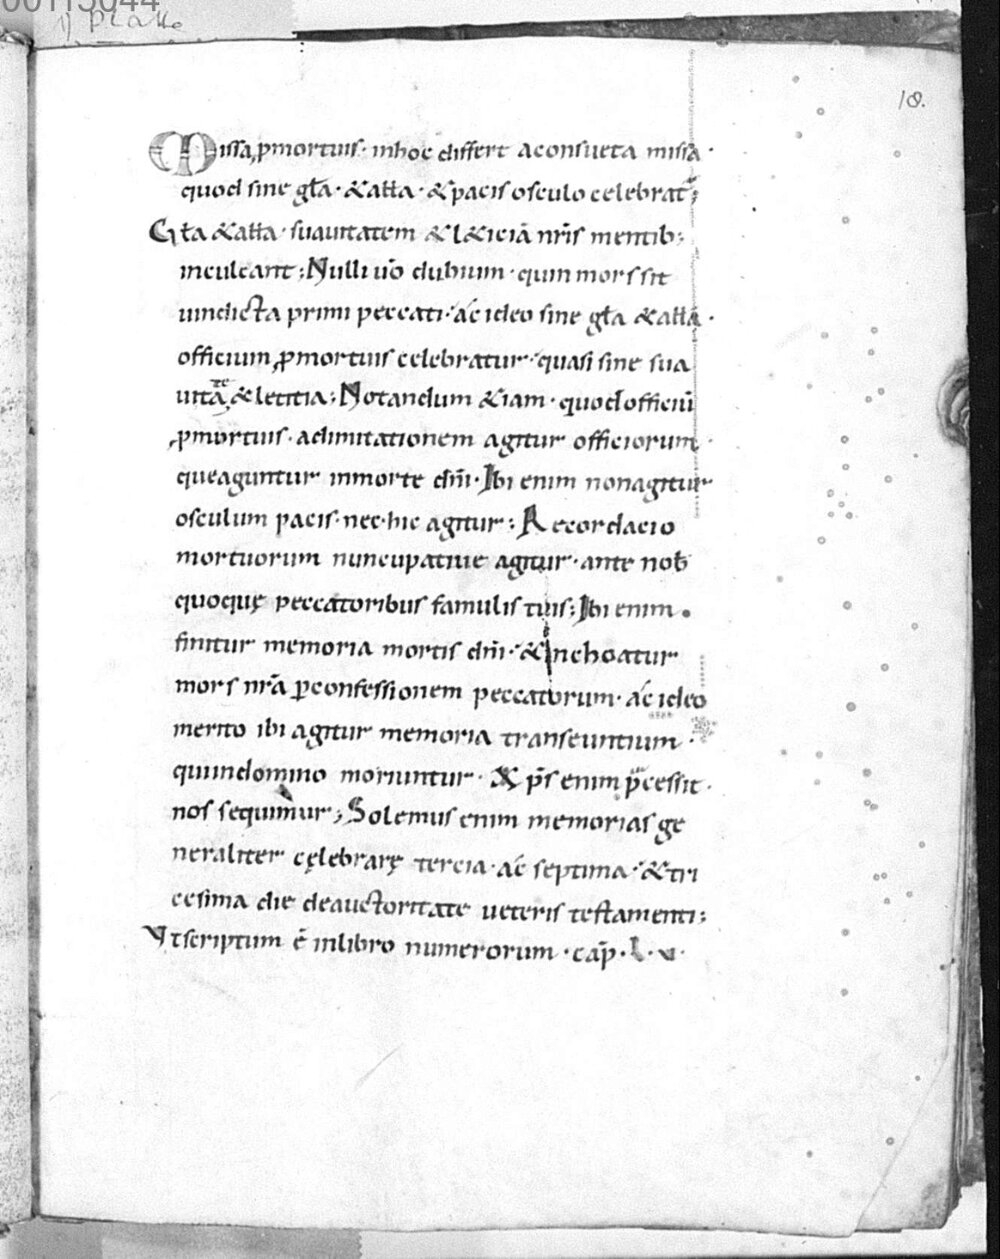 18.
Missa ꝓmortuis· inhoc differt aconsueta missa·
quod sine gła· & ałła· & pacis osculo celebrat̄;
Gła & ałła· suauitatem & l&iciā nr̄is mentib;
inculcant; Nulli ūo dubium· quin mors sit
uindicta primi peccati· ác ideo sine gła & ałła·
officium ꝓmortuis celebratur· quasi sine sua
uitate & letitia; Notandum &iam· quod officiū
ꝓmortuis· adimitationem agitur officiorum·
queaguntur inmorte dn̄i· Ibi enim nonagitur
osculum pacis· nec hic agitur; Recordacio
mortuorum nuncupatiue agitur· ante nob̄
quoquę peccatoribus famulis tuis; Ibi enim·
finitur memoria mortis dn̄i· & inchoatur
mors nr̄a ꝑconfessionem peccatorum· ác ideo
merito ibi agitur memoria transeuntium·
quiindomino moriuntur· Xp̄s enim p̄cessit·
nos sequimur; Solemus enim memorias ge
neraliter cęlebrarę tercia· ác septima· & tri
cesima die deauctoritate ueteris testamenti;
Vt scriptum ē inlibro numerorum· cap̄· L· v·